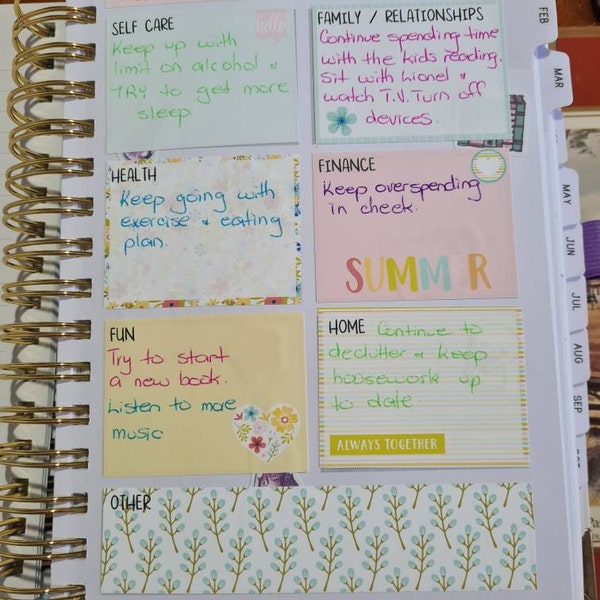 SELF CARE
hello
Keep up with
limit on alcohol &
TRY to get more
sleep
FAMILY / RELATIONSHIPS
Continue spending time
with the kids reading.
Sit with Lionel &
watch T.V. Turn off
devices.
HEALTH
Keep going with
exercise & eating
plan.
FINANCE
Keep overspending
in check.
SUMMER
FUN
Try to start
a new book.
Listen to more
music
HOME Continue to
declutter & keep
housework up
to date.
ALWAYS TOGETHER
OTHER
FEB
MAR
MAY
JUN
JUL
AUG
SEP